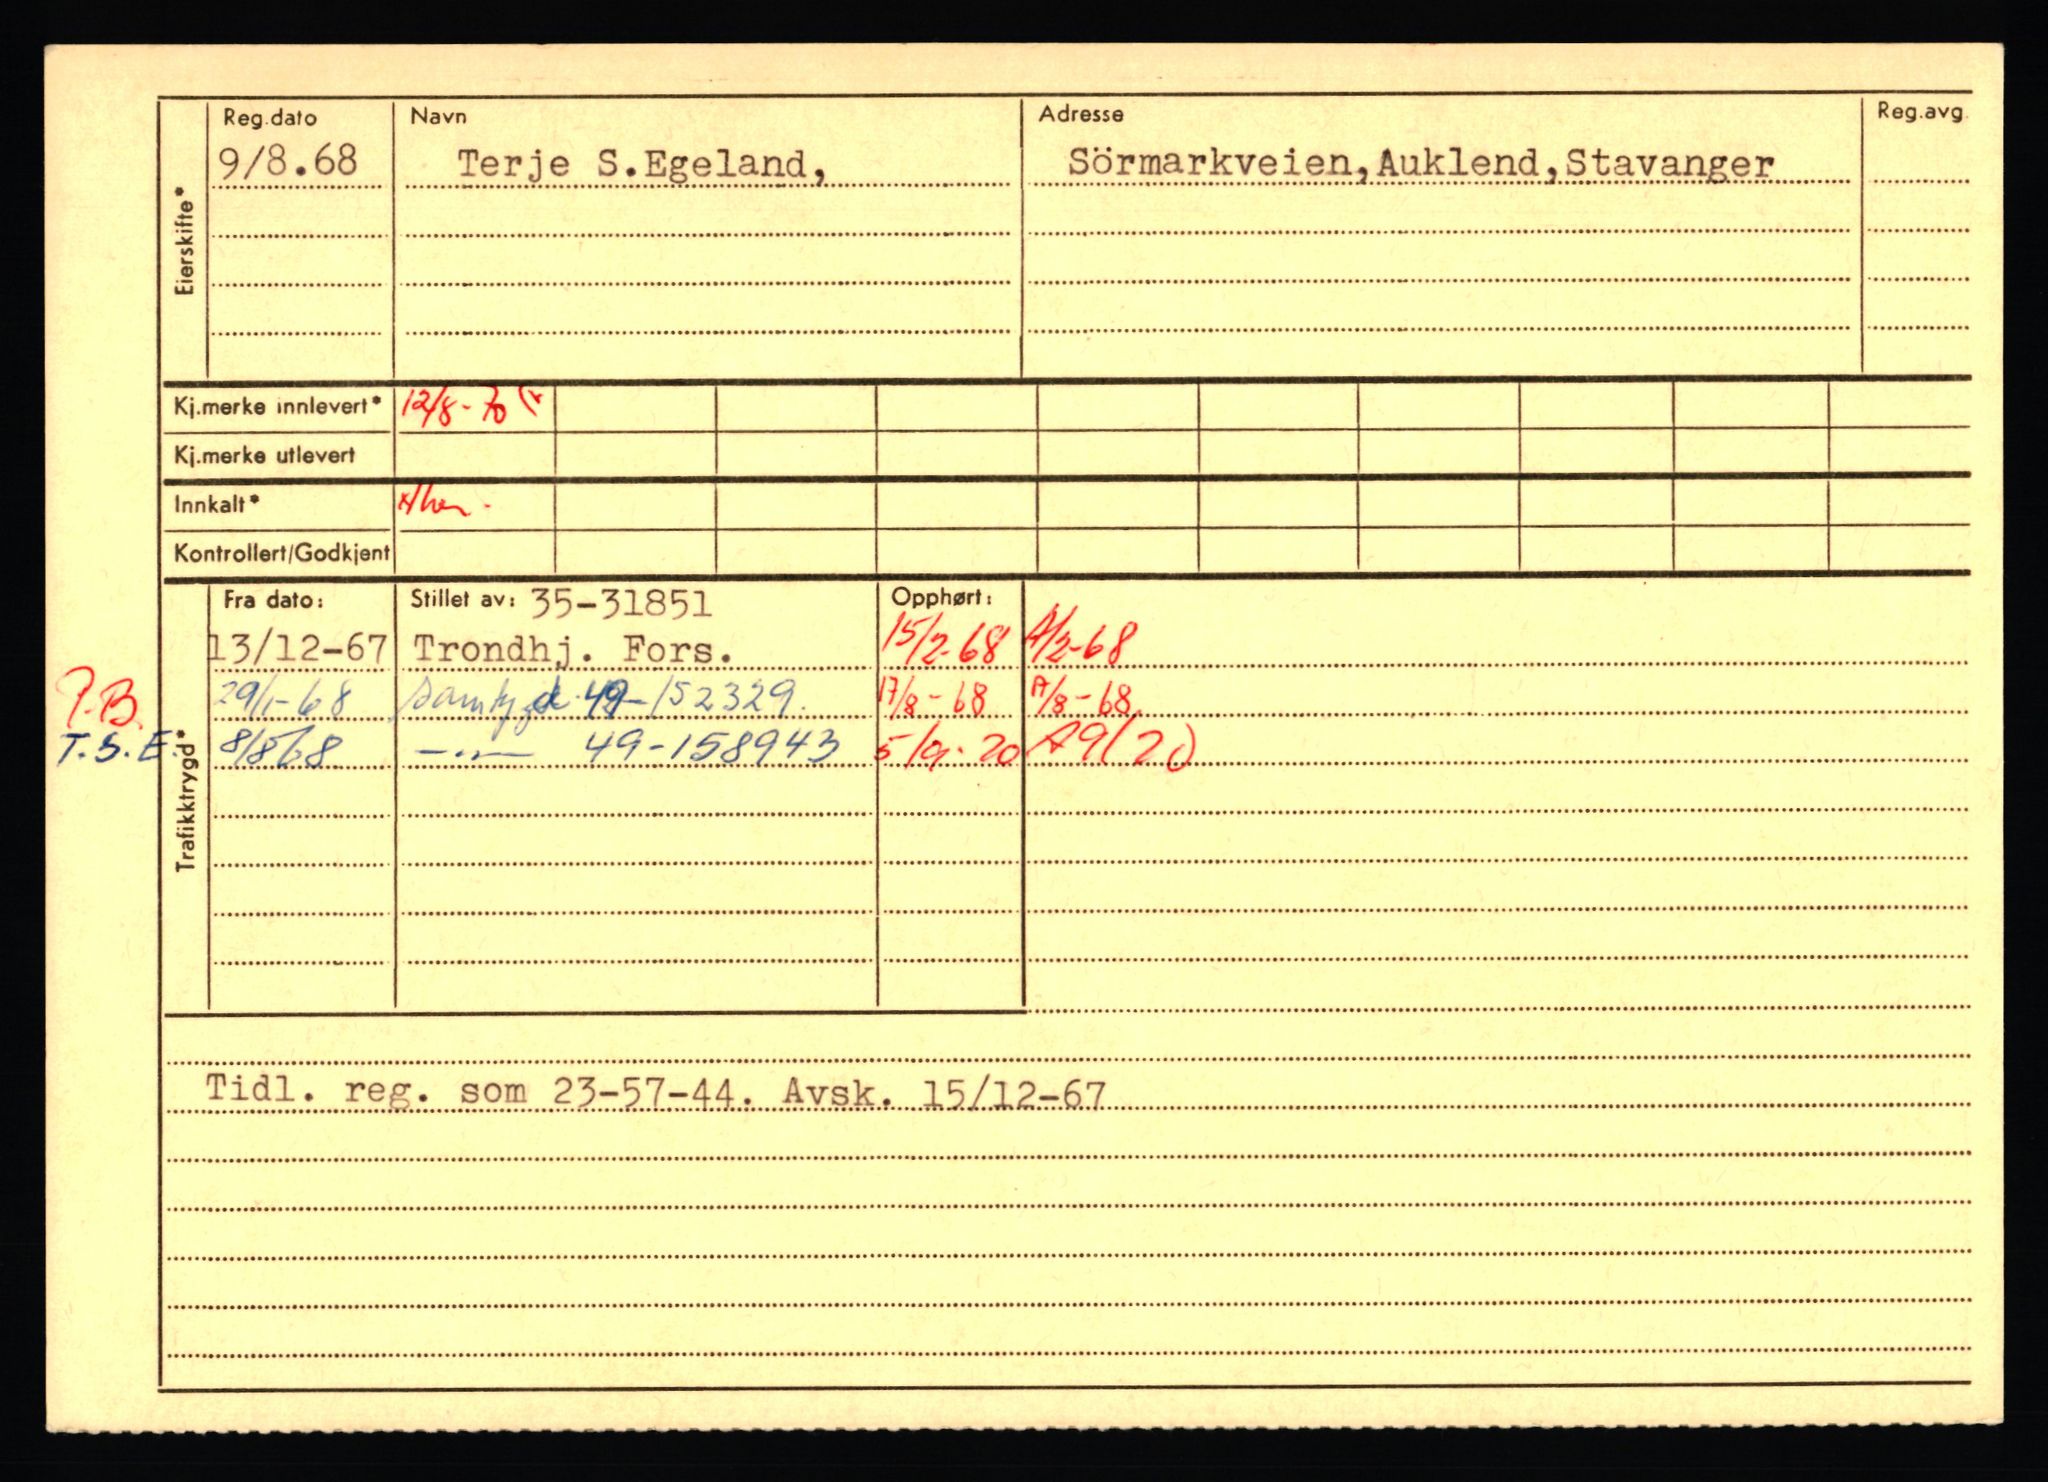 Reg.dato Navn Adresse Reg.avg.
9/8.68 Terje S.Egeland, Sörmarkveien,Auklend,Stavanger
Eierskifte*
Kj.merke innlevert* 12/8-70
Kj.merke utlevert
Innkalt*
Kontrollert/Godkjent
Fra dato: Stillet av: 35-31851 Opphørt:
13/12-67 Trondhj. Fors. 15/2-68
P.B. 29/1-68 Samtygd 49-152329. 17/8-68 17/8-68
T.S.E. 8/8 68 —·— 49-158943
Trafikktrygd*
Tidl. reg. som 23-57-44. Avsk. 15/12-67